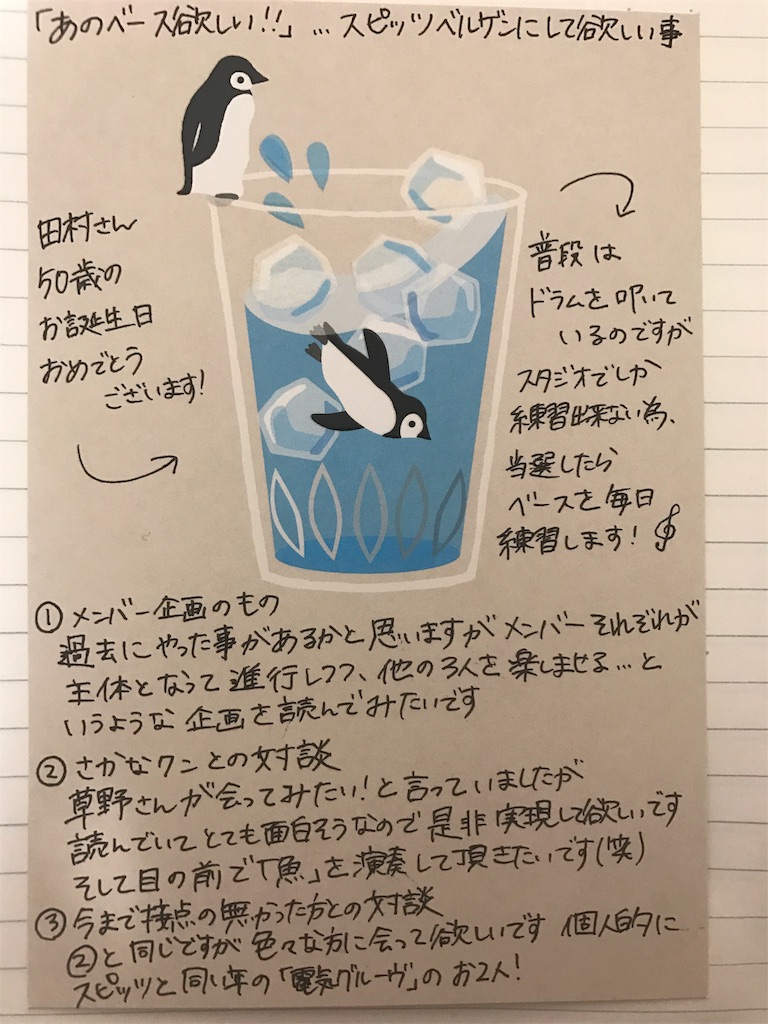 「あのベース欲しい!!」…スピッツベルゲンにして欲しい事
田村さん
50歳の
お誕生日
おめでとう
ございます!
普段は
ドラムを叩いて
いるのですが
スタジオでしか
練習出来ない為、
当選したら
ベースを毎日
練習します!
①メンバー企画のもの
過去にやった事があるかと思いますがメンバーそれぞれが
主体となって進行しつつ、他の3人を楽しませる…と
いうような企画を読んでみたいです
②さかなクンとの対談
草野さんが会ってみたい!と言っていましたが
読んでいてとても面白そうなので是非実現して欲しいです
そして目の前で「魚」を演奏して頂きたいです(笑)
③今まで接点の無かった方との対談
②と同じですが色々な方に会って欲しいです 個人的に
スピッツと同い年の「電気グルーヴ」のお2人!